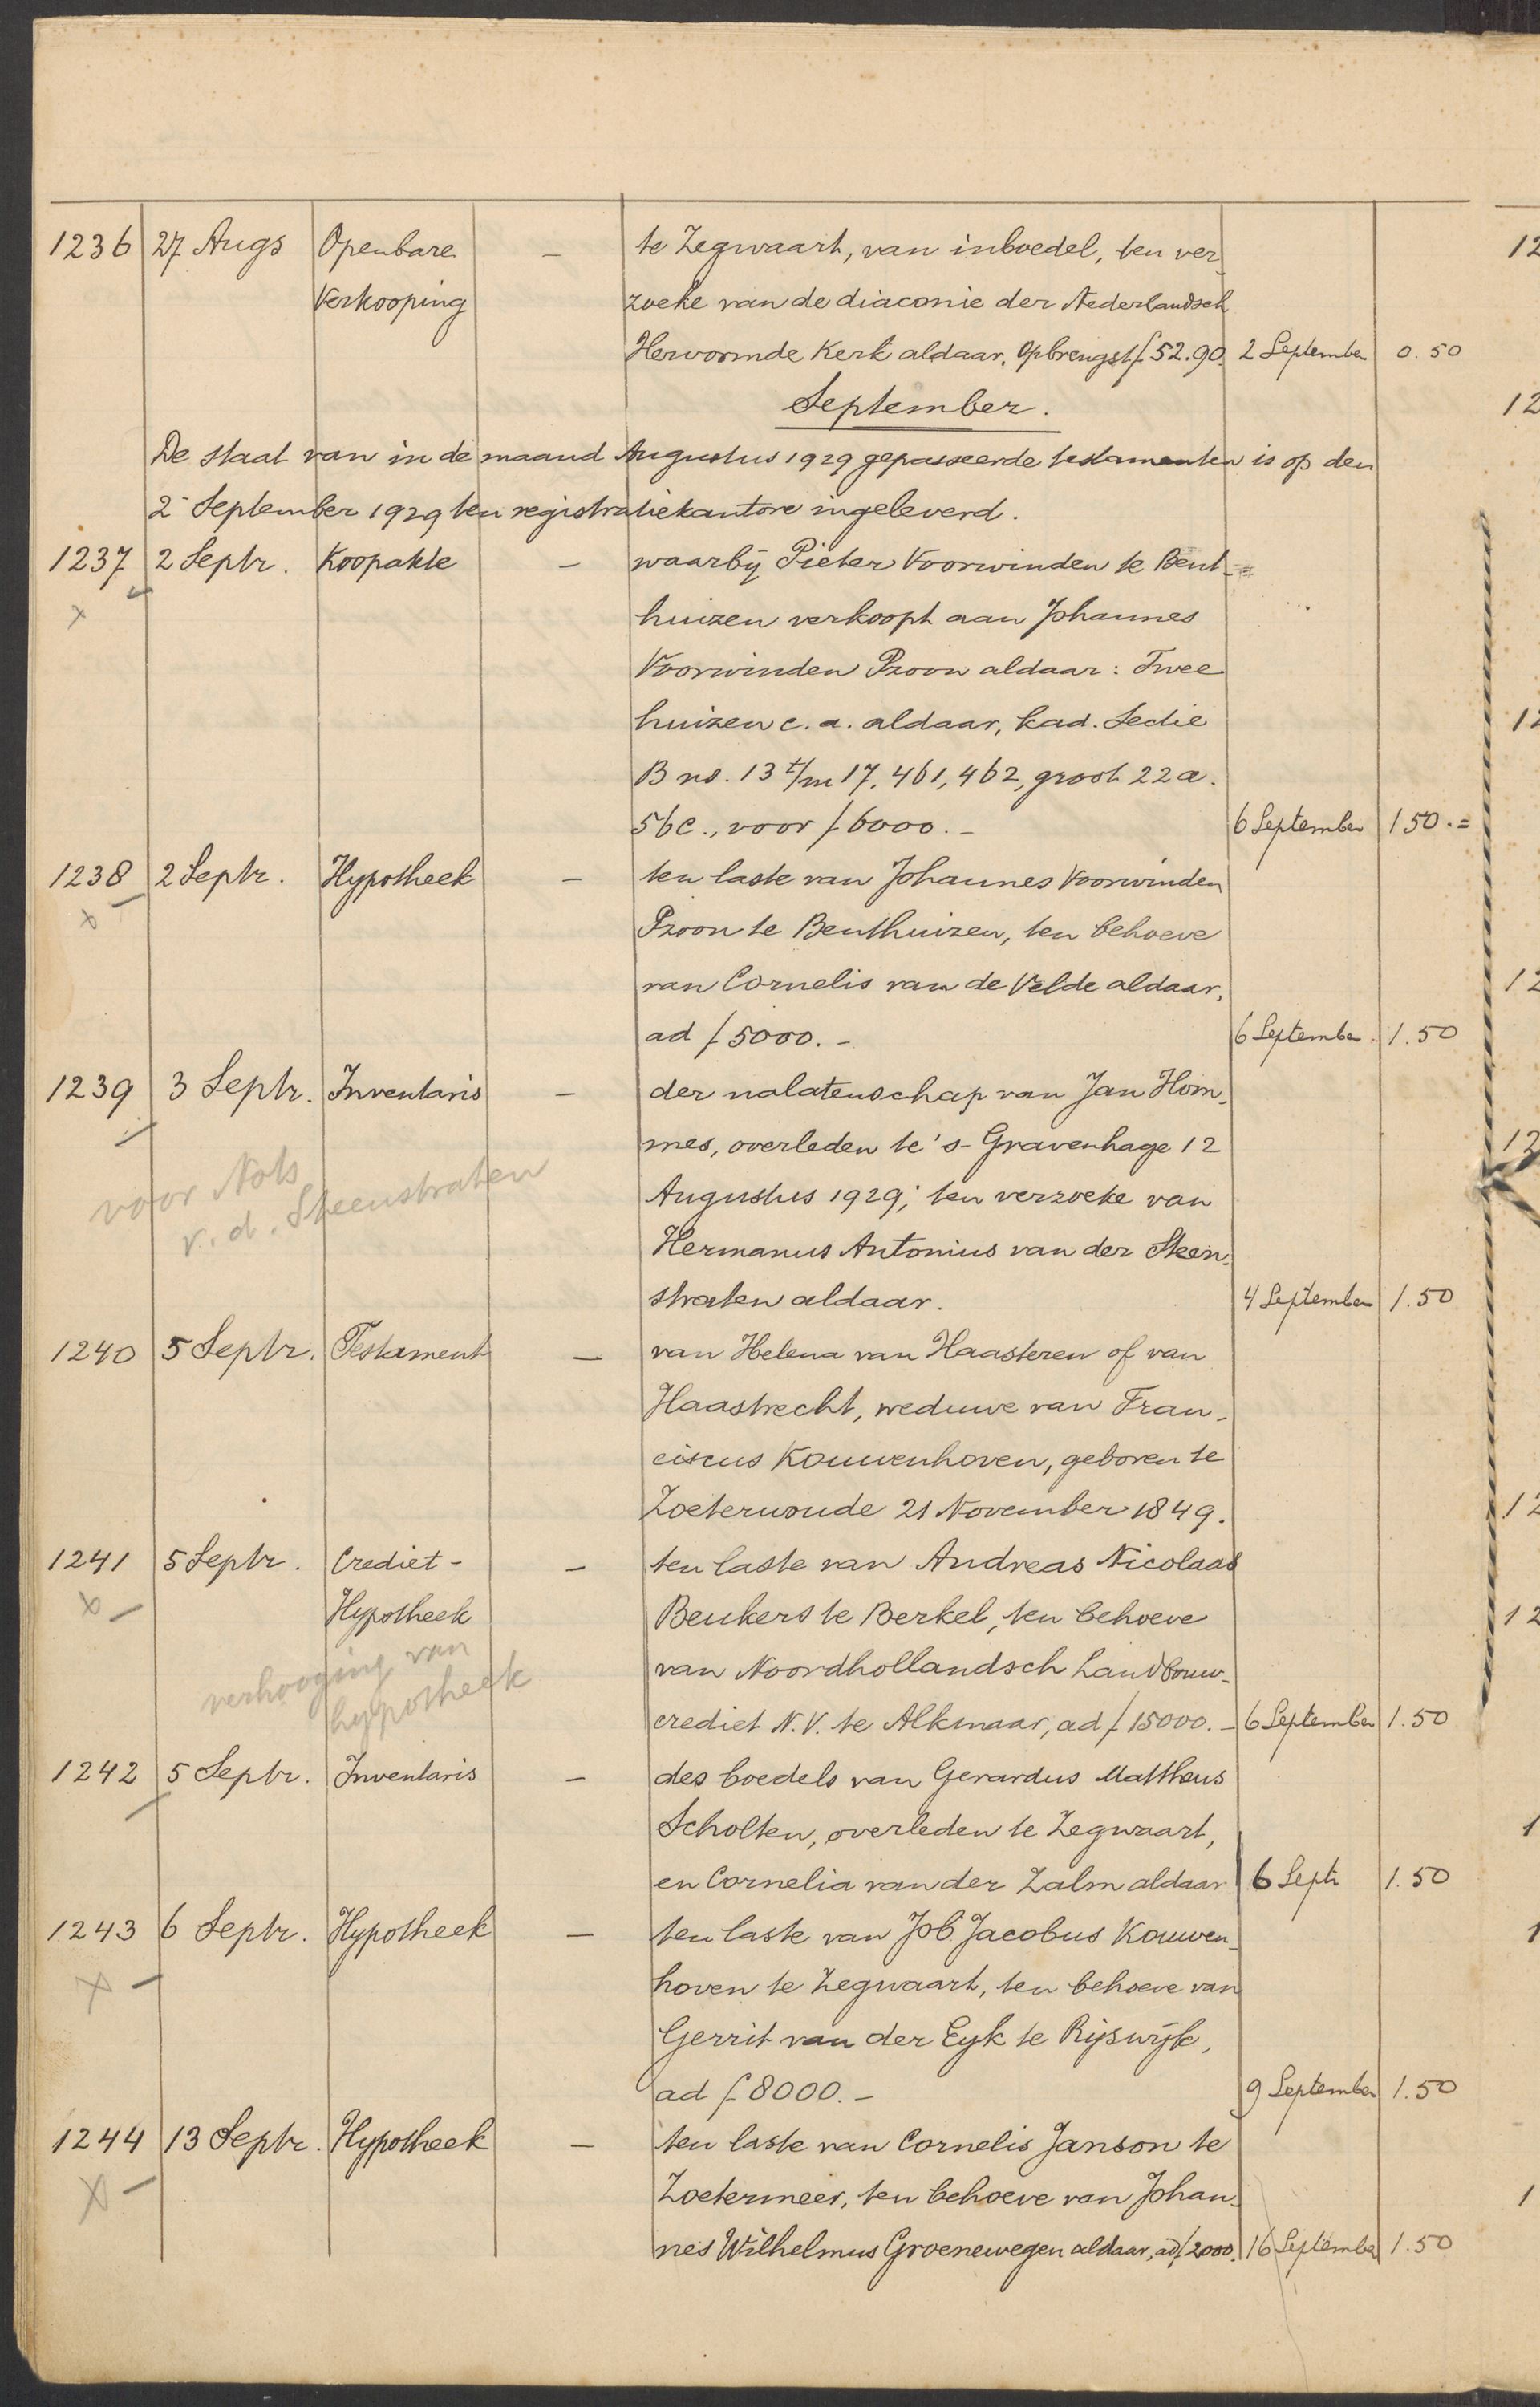 1236 27 Augs Openbare — te Zegwaart, van inboedel, ten ver-
Verkooping zoeke van de diaconie der Nederlandsch
Hervormde Kerk aldaar. Opbrengst f 52.90. 2 September 0.50
September.
De staat van in de maand Augustus 1929 gepasseerde testamenten is op den
2 September 1929 ten registratiekantore ingeleverd.
1237 2 Septr. Koopakte — waarbij Pieter Voorwinden te Bent-
x huizen verkoopt aan Johannes
Voorwinden Pzoon aldaar: Twee
huizen c.a. aldaar, kad. Sectie
B no. 13 t/m 17, 461, 462, groot 22 a.
56 c., voor f 6000.- 6 September 150.=
1238 2 Septr. Hypotheek — ten laste van Johannes Voorwinden
x Pzoon te Benthuizen, ten behoeve
van Cornelis van de Velde aldaar,
ad f 5000.- 6 September 1.50
1239 3 Septr. Inventaris — der nalatenschap van Jan Hom-
mes, overleden te 's-Gravenhage 12
voor Nots Augustus 1929; ten verzoeke van
v. d. Steenstraten Hermanus Antonius van der Steen-
straten aldaar. 4 September 1.50
1240 5 Septr. Testament — van Helena van Haasteren of van
Haastrecht, weduwe van Fran-
ciscus Kouwenhoven, geboren te
Zoeterwoude 21 November 1849.
1241 5 Septr. Crediet- — ten laste van Andreas Nicolaas
x Hypotheek Beukers te Berkel, ten behoeve
verhooging van van Noordhollandsch Landbouw-
hypotheek crediet N.V. te Alkmaar, ad f 15000.- 6 September 1.50
1242 5 Septr. Inventaris — des boedels van Gerardus Mattheus
Scholten, overleden te Zegwaart,
en Cornelia van der Zalm aldaar 6 Septr 1.50
1243 6 Septr. Hypotheek — ten laste van Job Jacobus Kouwen-
x hoven te Zegwaart, ten behoeve van
Gerrit van der Eyk te Rijswijk,
ad f 8000.- 9 September 1.50
1244 13 Septr. Hypotheek — ten laste van Cornelis Janson te
x Zoetermeer, ten behoeve van Johan-
nes Wilhelmus Groenewegen aldaar, ad f 2000. 16 September 1.50